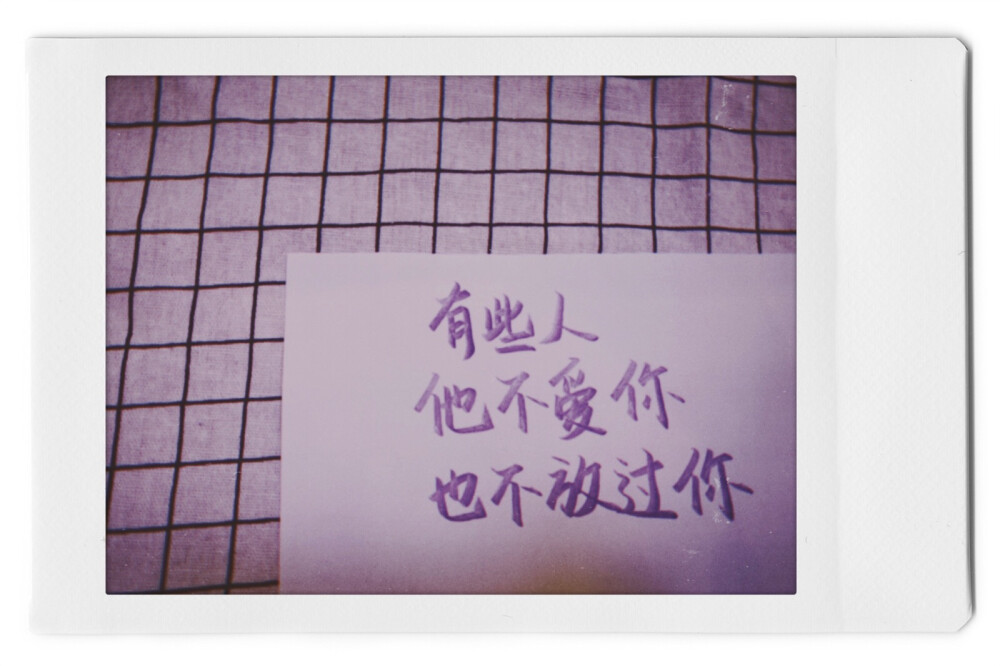 有些人
他不爱你
也不放过你